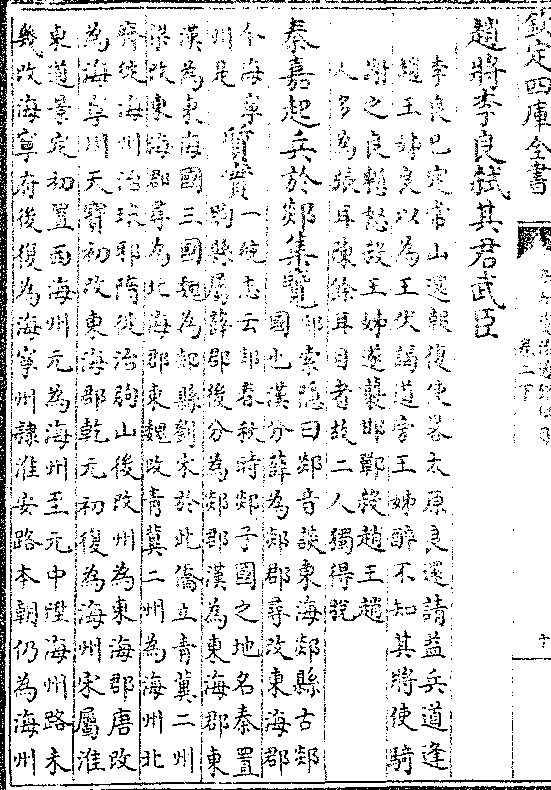 欽定四庫全書
卷二下
趙將李良弑其君武臣
李良已定常山還報復使畧太原良還請益兵道逢
趙王姊良以為王伏謁道旁王姊醉不知其將使騎
謝之良慙怒殺王姊遂襲邯鄲殺趙王趙
人多為張耳陳餘耳目者故二人獨得脫
秦嘉起兵於郯集覽
郯索隱曰郯音談東海郯縣古郯
國也漢分薛為郯郡尋改東海郡
今海寧
州是
質實
一統志云郯春秋時郯子國之地名秦置
朐縣屬薛郡後分為郯郡漢為東海郡東
漢為東海國三國魏為郯縣劉宋於此僑立青冀二州
梁改東海郡尋為北海郡東魏改青冀二州為海州北
齊徙海州治琅邪隋徙治朐山後改州為東海郡唐改
為海寧州天寶初改東海郡乾元初復為海州宋屬淮
東道景定初置西海州元為海州至元中陞海州路未
幾改海寧府後復為海寧州隸淮安路本朝仍為海州